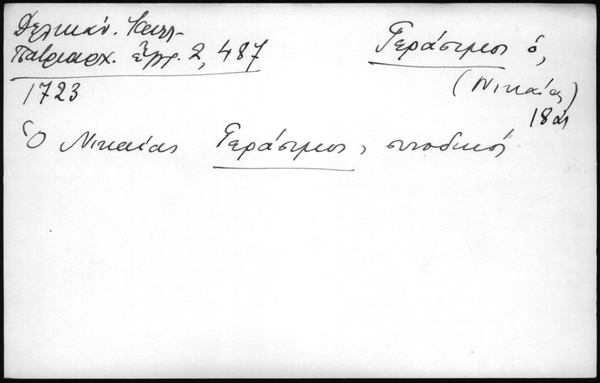 Δελικάν. Κων/
Πατριαρχ. ἔγγρ. 2, 487
1723
Γεράσιμος ὁ,
(Νικαίας)
18 αἰ
Ὁ Νικαίας Γεράσιμος, συνοδικός